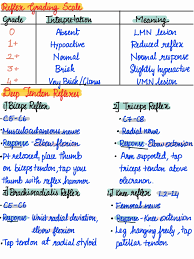 Reflex Grading Scale
Grade Interpretation Meaning
0 Absent LMN lesion
1+ Hypoactive Reduced reflex
2+ Normal Normal response
3+ Brisk Slightly hyperactive
4+ Very Brisk/Clonus UMN lesion
Deep Tendon Reflexes
1) Biceps Reflex
• C5-C6
• Musculocutaneous nerve
• Response - Elbow flexion
• Pt relaxed, place thumb
on biceps tendon, tap your
thumb with reflex hammer
2) Triceps Reflex
• C7-C8
• Radial nerve
• Response - Elbow extension
• Arm supported, tap
triceps tendon above
olecranon
3) Brachioradialis Reflex
• C5-C6
• Response - Wrist radial deviation,
elbow flexion
• Tap tendon at radial styloid
4) Knee reflex L2-L4
• Femoral nerve
• Response - Knee extension
• Leg hanging freely, tap
patellar tendon